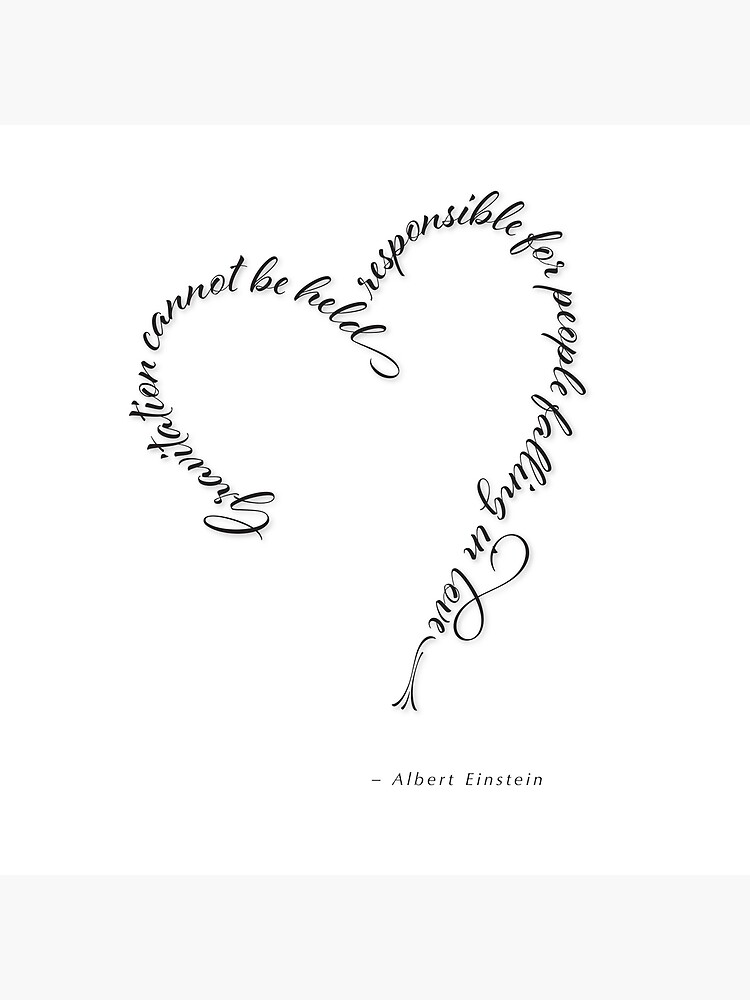 Gravitation cannot be held responsible for people falling in love
– Albert Einstein